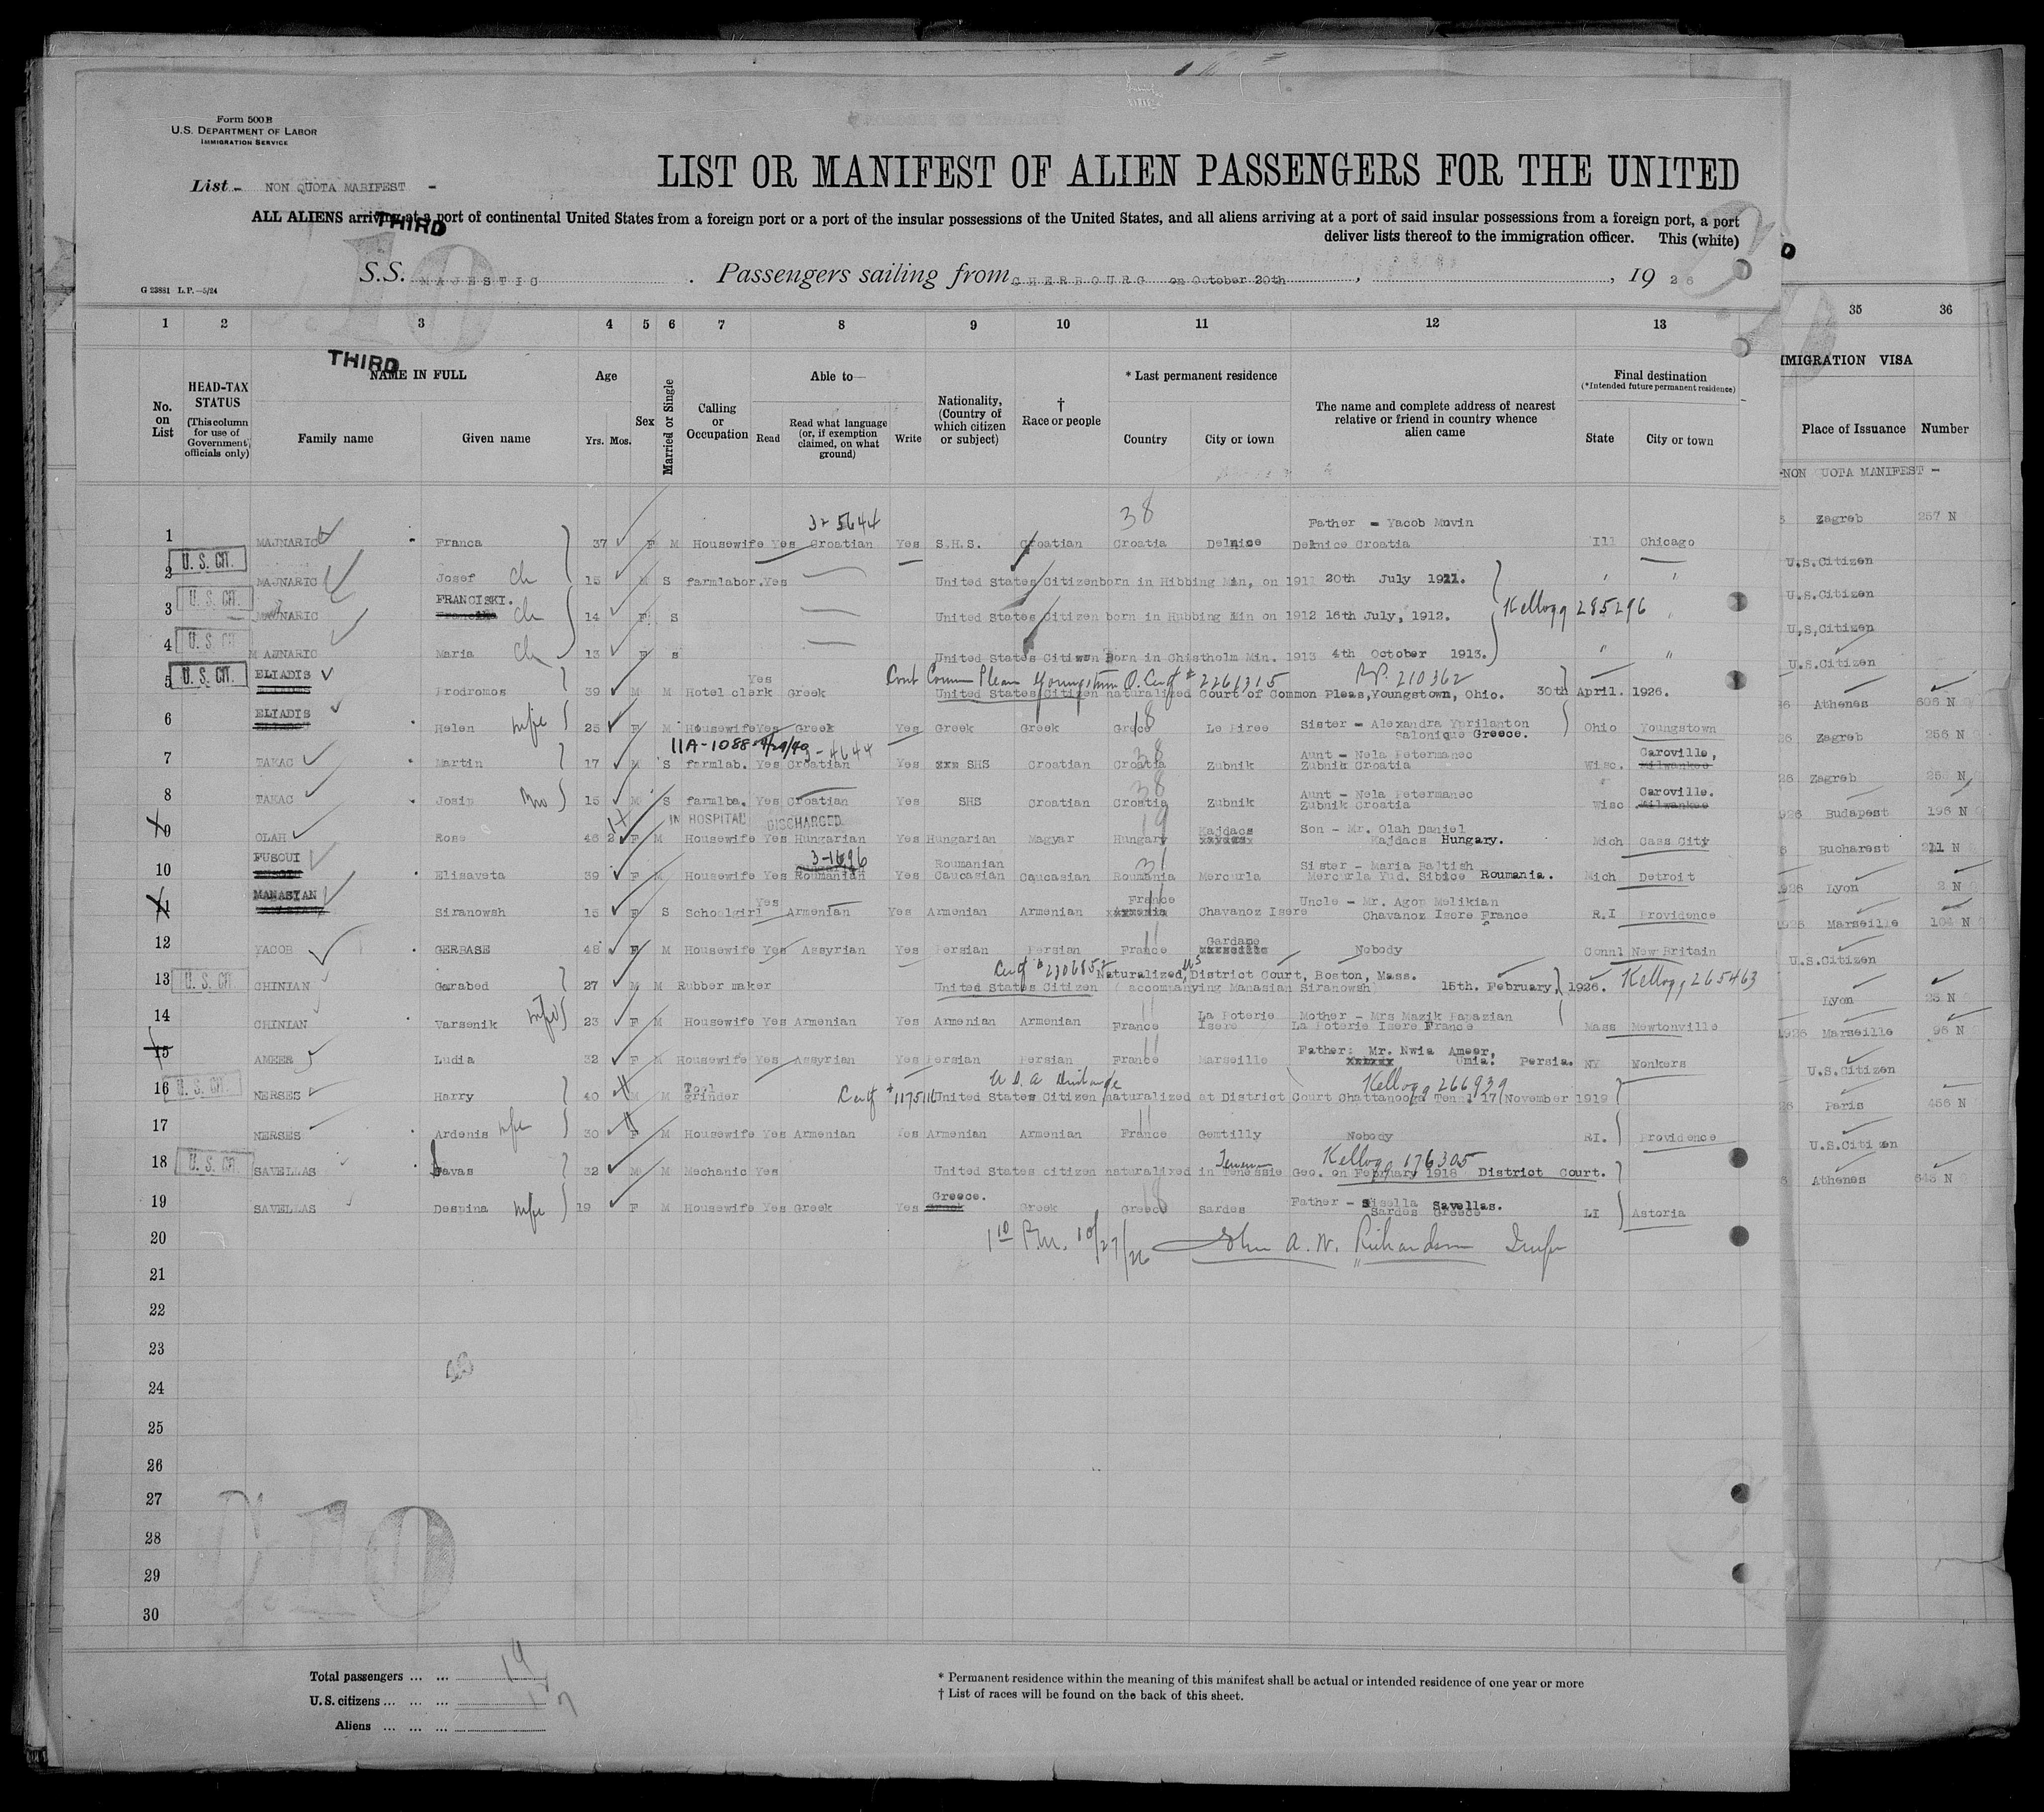 Form 500 B
U.S. DEPARTMENT OF LABOR
IMMIGRATION SERVICE
List - NON QUOTA MANIFEST -
LIST OR MANIFEST OF ALIEN PASSENGERS FOR THE UNITED
ALL ALIENS arriving at a port of continental United States from a foreign port or a port of the insular possessions of the United States, and all aliens arriving at a port of said insular possessions from a foreign port, a port
THIRD
deliver lists thereof to the immigration officer. This (white)
S.S. MAJESTIC. Passengers sailing from CHERBOURG on October 20th, , 19 26
G 23881 L.P.—5/24
1 2 3 4 5 6 7 8 9 10 11 12 13 35 36
THIRD
No. on List
HEAD-TAX STATUS
(This column for use of Government officials only)
NAME IN FULL
Family name Given name
Age
Yrs. Mos.
Sex
Married or Single
Calling or Occupation
Able to—
Read
Read what language (or, if exemption claimed, on what ground)
Write
Nationality, (Country of which citizen or subject)
† Race or people
* Last permanent residence
Country City or town
The name and complete address of nearest relative or friend in country whence alien came
Final destination
(*Intended future permanent residence)
State City or town
IMMIGRATION VISA
Place of Issuance Number
-NON UOTA MANIFEST -
3- 5644 38 Father - Yacob Muvin
1 MAJNARIC Franca 37 F M Housewife Yes Croatian Yes S.H.S. Croatian Croatia Delnice Delnice Croatia Ill Chicago Zagreb 257 N
2 U. S. CIT. MAJNARIC Josef ch 15 M S farmlabor. Yes United States Citizen born in Hibbing Min, on 1911 20th July 1911. " " U.S.Citizen
FRANCISKI.
3 U. S. CIT. MAJNARIC ch 14 F S United States Citizen born in Hubbing Min on 1912 16th July, 1912. Kellogg 285296 " U.S.Citizen
4 U. S. CIT. MAJNARIC Maria ch 13 F s United States Citizen Born in Chistholm Min. 1913 4th October 1913. " " U,S,Citizen
Cert Comm Pleas Youngstown O. Cert # 2261315 P.P. 210362
5 U. S. CIT. ELIADIS Prodromos 39 M M Hotel clerk Yes Greek United States Citizen naturalized Court of Common Pleas, Youngstown, Ohio. 30th April. 1926. U.S.Citizen
6 ELIADIS Helen wife 25 F M Housewife Yes Greek Yes Greek Greek Grece 18 Le Piree Sister - Alexandra Yprilanton salonique Greece. Ohio Youngstown Athenes 606 N
11A-1088 3-4644 38
7 TAKAC Martin 17 M S farmlab. Yes Croatian Yes SHS Croatian Croatia Zubnik Aunt - Nela Petermanec Zubnik Croatia Wisc. Caroville, Milwankee Zagreb 256 N
8 TAKAC Josip bro 15 M S farmlba. Yes Croatian Yes SHS Croatian Croatia 38 Zubnik Aunt - Nela Petermanec Zubnik Croatia Wisc Caroville. Milwankee Zagreb
IN HOSPITAL DISCHARGED
9 OLAH Rose 46 2 F M Housewife Yes Hungarian Yes Hungarian Magyar Hungary 19 Kajdacs Son - Mr. Olah Daniel Kajdacs Hungary. Mich Cass City Budapest 196 N
3-1696
10 FUSOUI Elisaveta 39 F M Housewife Yes Roumanian Yes Roumanian Caucasian Caucasian Roumania 31 Mercurla Sister - Maria Baltish Mercurla Yud. Sibice Roumania. Mich Detroit Bucharest 211 N
11 MANASIAN Siranowsh 15 F S Schoolgirl Yes Armenian Yes Armenian Armenian France 11 Chavanoz Isere Uncle - Mr. Agop Melikian Chavanoz Isere France R.I Providence Lyon 2 N
12 YACOB GERBASE 48 F M Housewife Yes Assyrian Yes Persian Persian France 11 Gardane Marseille Nobody Connl New Britain Marseille 104 N
Cert # 2306852 Naturalized, US District Court, Boston, Mass.
13 U. S. CIT. CHINIAN Garabed 27 M M Rubber maker United States Citizen ( accompanying Manasian Siranowsh) 15th. February, 1926. Kellogg 265463 U.S.Citizen
14 CHINIAN Varsenik wife 23 F M Housewife Yes Armenian Yes Armenian Armenian France 11 La Poterie Isere Mother - Mrs Mazik Papazian La Poterie Isere France Mass Newtonville Lyon 25 N
15 AMEER Ludia 32 F M Housewife Yes Assyrian Yes Persian Persian France 11 Marseille Father: Mr. Nwia Ameer, Umia. Persia. NY Nonkers Marseille 96 N
U.S.A. Discharge Kellogg 266939
16 U. S. CIT. NERSES Harry 40 M M Tool grinder Cert # 1175116 United States Citizen naturalized at District Court Chattanooga Tenn. 17 November 1919 U.S.Citizen
17 NERSES Ardenis wife 30 F M Housewife Yes Armenian Yes Armenian Armenian France 11 Gentilly Nobody RI. Providence Paris 456 N
Kellogg 176305
18 U. S. CIT. SAVELLAS Savas 32 M M Mechanic Yes United States citizen naturalized in Tenessie Geo. on February 1918 District Court. U.S.Citizen
19 SAVELLAS Despina wife 19 F M Housewife Yes Greek Yes Greece. Greek Greece 18 Sardes Father - Sisella Savellas. Sardes Greece LI Astoria Athenes 643 N
20 1 10 P.M. 10/27/26 John A. W. Richardson Insp
21
22
23
24
25
26
27
28
29
30
C.10
Total passengers ... ... 19
U. S. citizens ... ... ... 7
Aliens ... ... ...
* Permanent residence within the meaning of this manifest shall be actual or intended residence of one year or more
† List of races will be found on the back of this sheet.